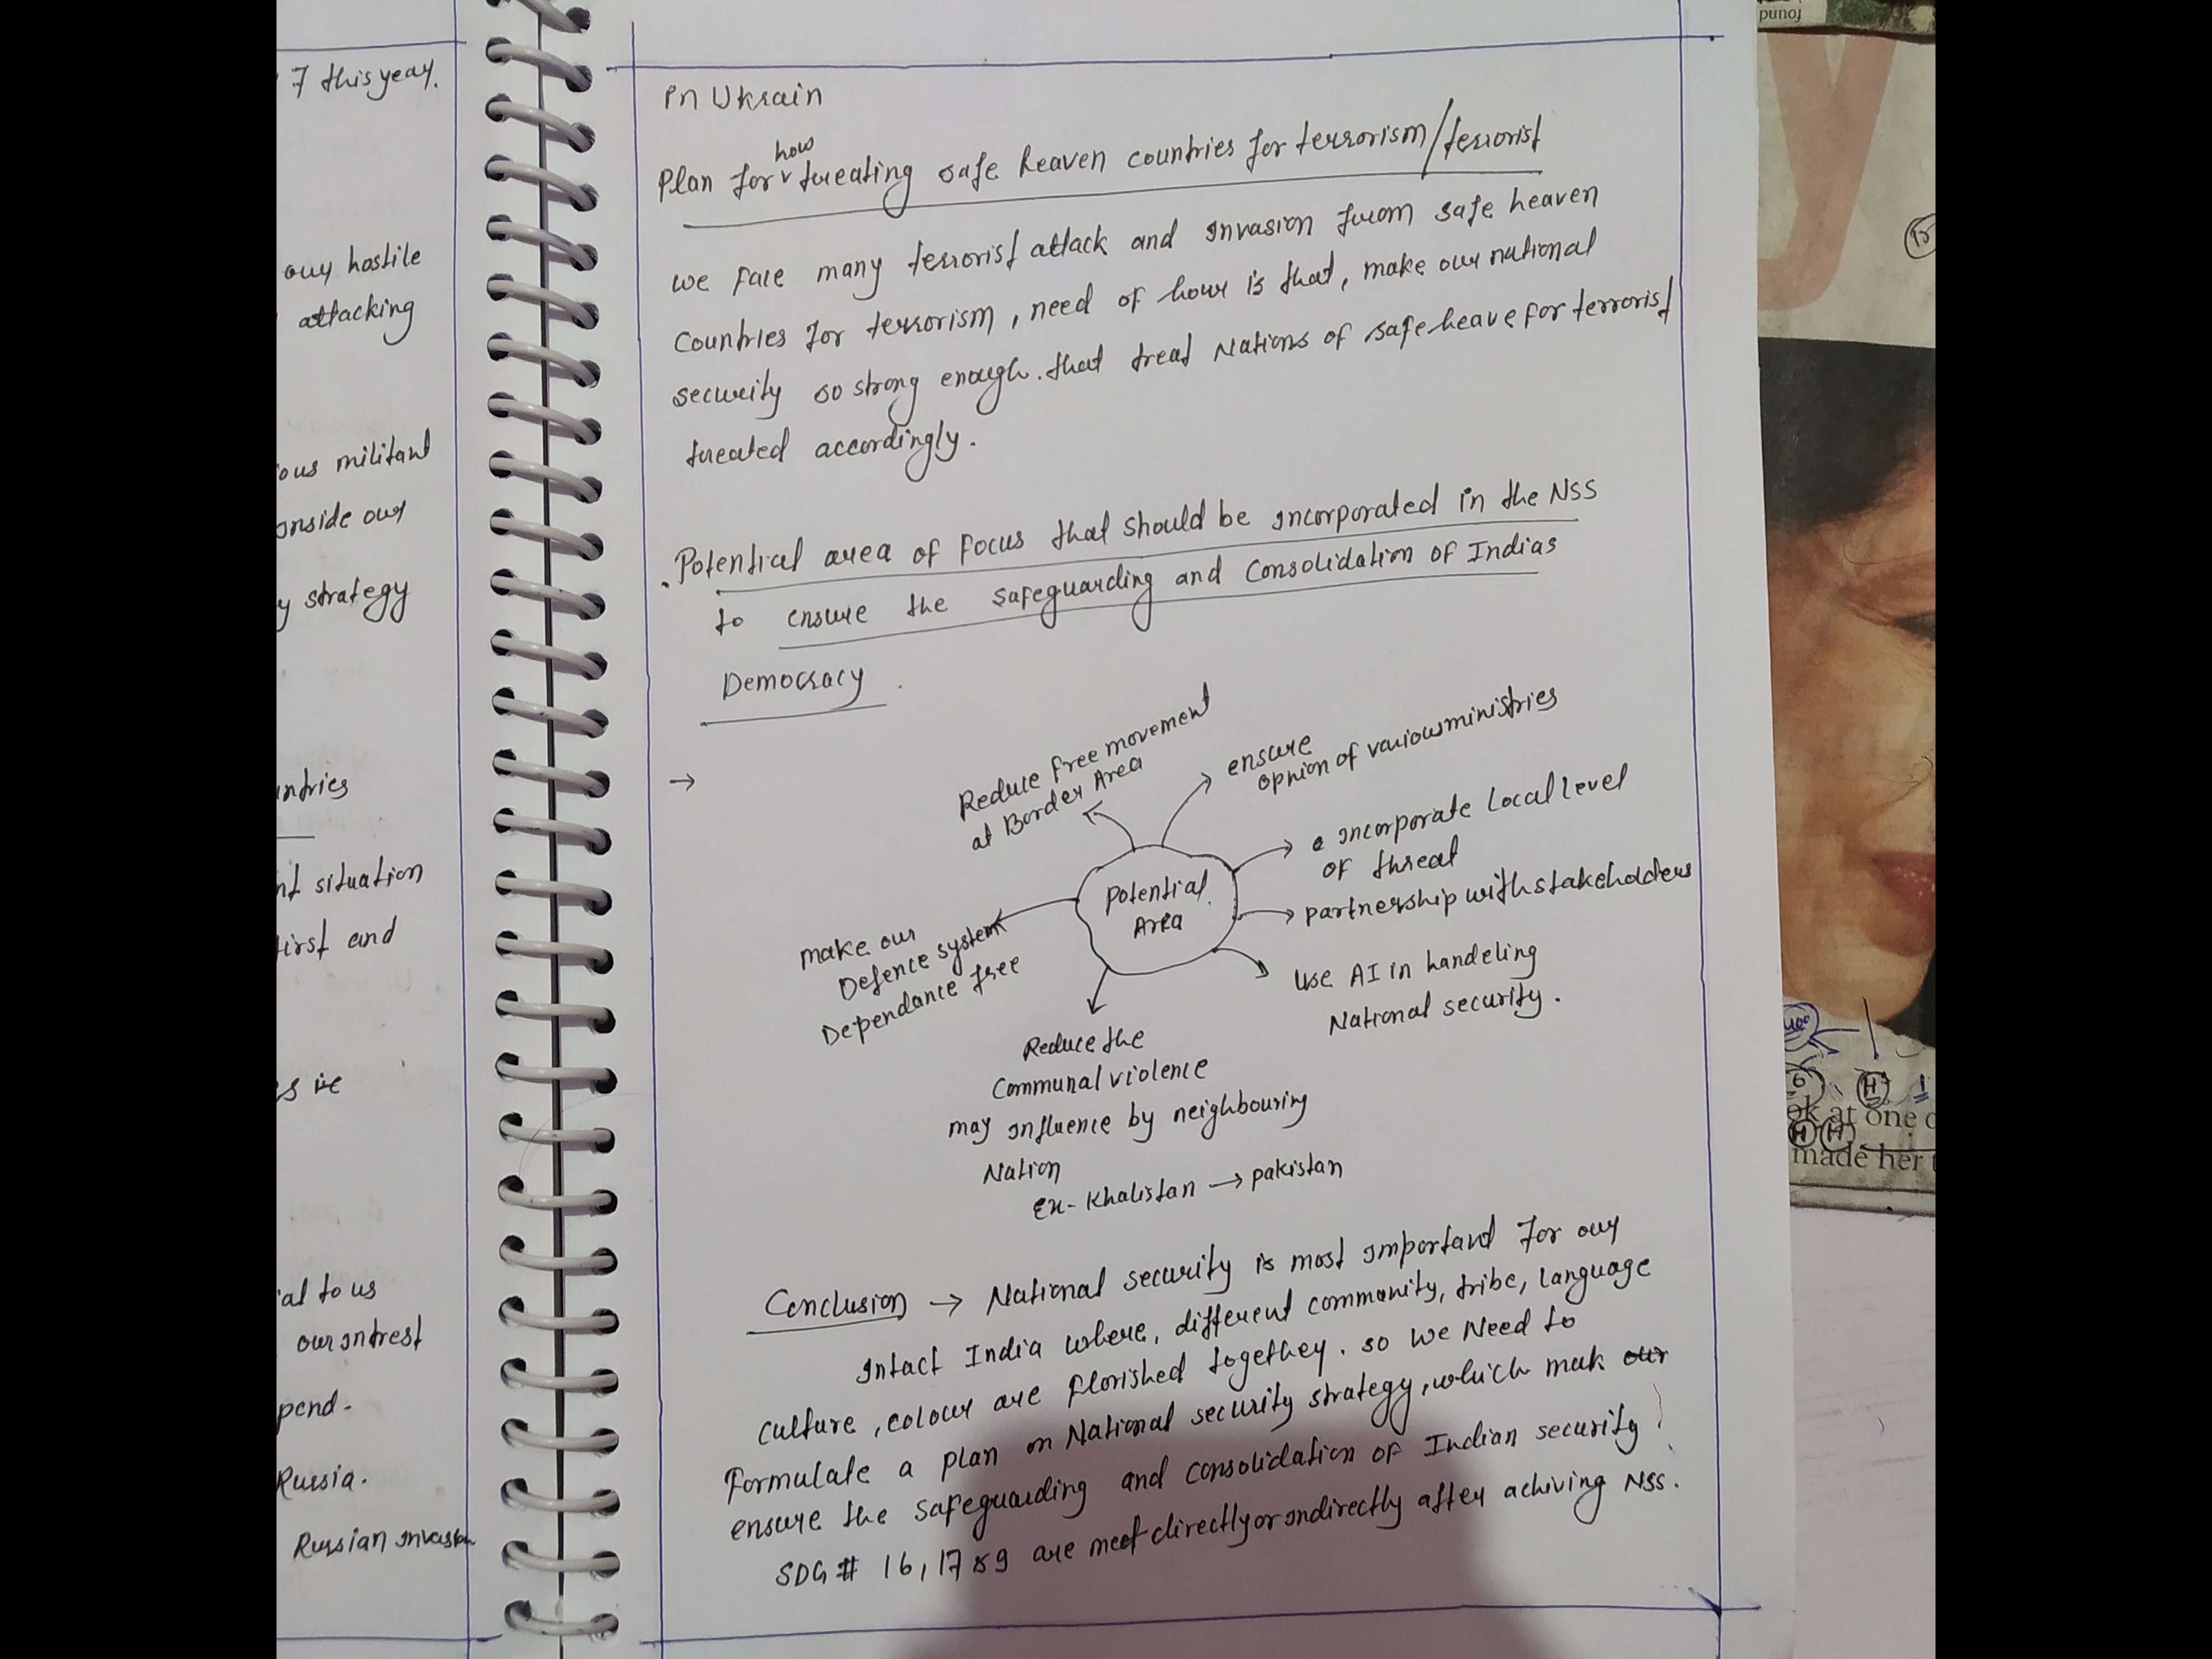 7 this year.
our hostile
attacking
ious militant
inside our
y strategy
untries
nt situation
first and
es ie
ial to us
our intrest
pend.
Russia.
Russian invasion
in Ukrain
how
Plan for treating safe heaven countries for terrorism/terrorist
we face many terrorist attack and invasion from safe heaven
countries for terrorism, need of hour is that, make our national
security so strong enough. that treat Nations of safe heave for terrorist
treated accordingly.
. Potential area of focus that should be incorporated in the NSS
to ensure the safeguarding and consolidation of Indias
Democracy.
→
Reduce free movement
at Border Area
ensure
opnion of various ministries
incorporate Local level
of threat
partnership with stakeholders
Potential
Area
make our
Defence system
Dependance free
use AI in handeling
National security.
Reduce the
Communal violence
may influence by neighbouring
Nation
Ex- Khalistan → pakistan
Conclusion → National security is most important for our
intact India where, different community, tribe, language
culture, colour are florished together. so we Need to
Formulate a plan on National security strategy, which mak our
ensure the safeguarding and consolidation of Indian security.
SDG # 16, 17 & 9 are meet directly or indirectly after achiving NSS.
found
ok at one o
made her